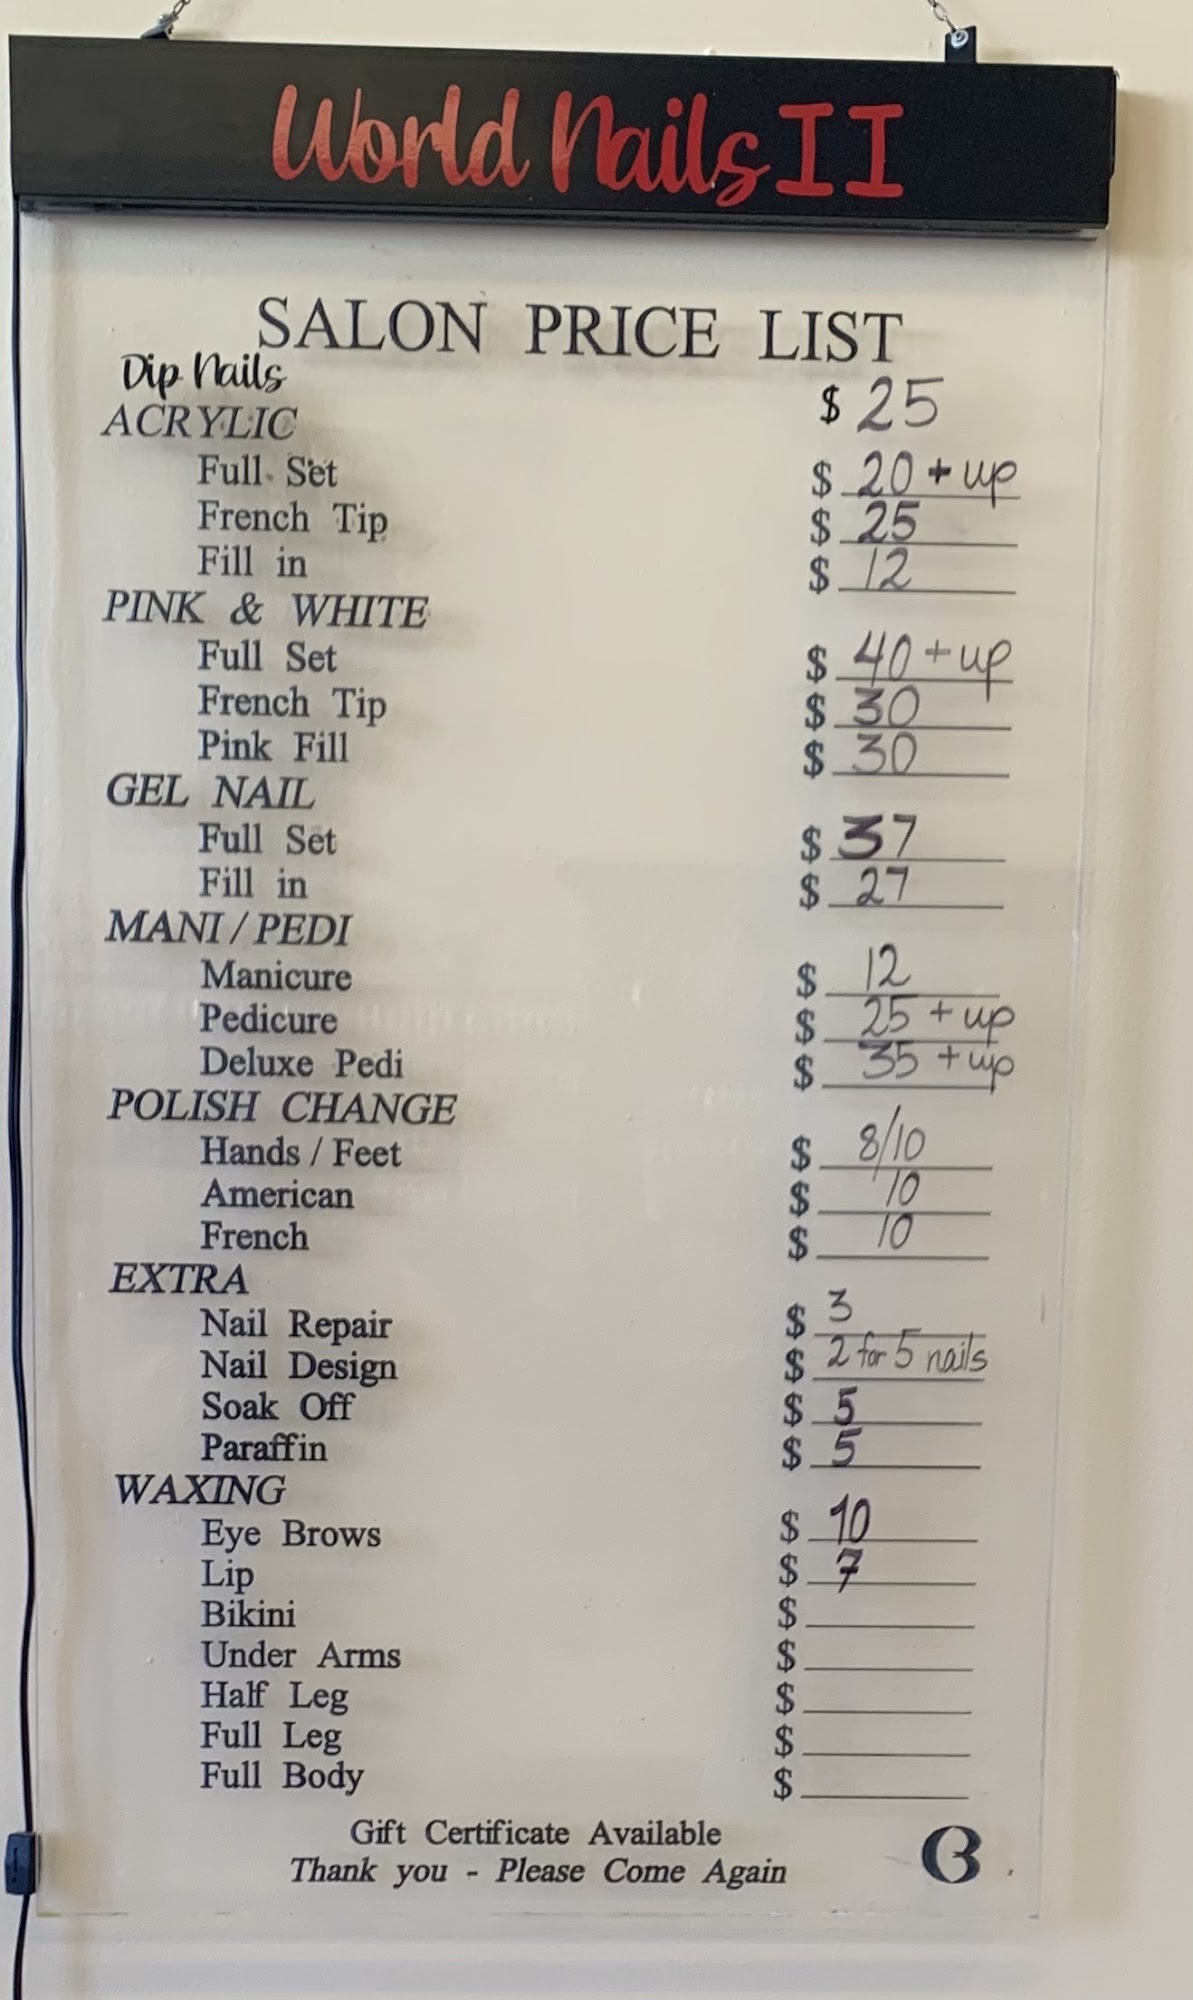 World Nails II
SALON PRICE LIST
Dip Nails $ 25
ACRYLIC
Full Set $ 20 + up
French Tip $ 25
Fill in $ 12
PINK & WHITE
Full Set $ 40 + up
French Tip $ 30
Pink Fill $ 30
GEL NAIL
Full Set $ 37
Fill in $ 27
MANI / PEDI
Manicure $ 12
Pedicure $ 25 + up
Deluxe Pedi $ 35 + up
POLISH CHANGE
Hands / Feet $ 8/10
American $ 10
French $ 10
EXTRA
Nail Repair $ 3
Nail Design $ 2 for 5 nails
Soak Off $ 5
Paraffin $ 5
WAXING
Eye Brows $ 10
Lip $ 7
Bikini $
Under Arms $
Half Leg $
Full Leg $
Full Body $
Gift Certificate Available
Thank you - Please Come Again